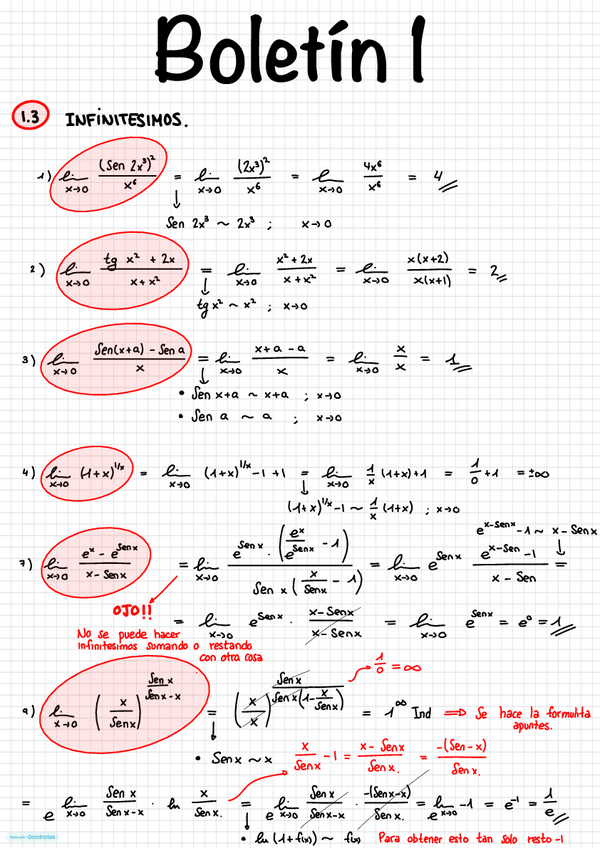 Boletín 1
1.3 INFINITESIMOS.
1) lim x→0 (Sen 2x³)² / x⁶ = lim x→0 (2x³)² / x⁶ = lim x→0 4x⁶ / x⁶ = 4
Sen 2x³ ~ 2x³ ; x→0
2) lim x→0 tg x² + 2x / x + x² = lim x→0 x² + 2x / x + x² = lim x→0 x(x+2) / x(x+1) = 2
tg x² ~ x² ; x→0
3) lim x→0 Sen(x+a) - Sen a / x = lim x→0 x+a - a / x = lim x→0 x / x = 1
• Sen x+a ~ x+a ; x→0
• Sen a ~ a ; x→0
4) lim x→0 (1+x)^1/x = lim x→0 (1+x)^1/x - 1 + 1 = lim x→0 1/x (1+x) + 1 = 1/0 + 1 = ±∞
(1+x)^1/x - 1 ~ 1/x (1+x) ; x→0
e^x-Senx - 1 ~ x - Senx
7) lim x→0 e^x - e^Senx / x - Senx = lim x→0 e^Senx · (e^x / e^Senx - 1) / Sen x (x / Senx - 1) = lim x→0 e^Senx e^x-Sen - 1 / x - Sen =
OJO!!
= lim x→0 e^Senx · x - Senx / x - Senx = lim x→0 e^Senx = e⁰ = 1
No se puede hacer
infinitesimos sumando o restando
con otra cosa
a) lim x→0 (x / Senx)^Senx / Senx - x = (x / x)^Senx / Senx(1 - x / Senx) = 1^∞ Ind ⇒ Se hace la formulita
1/0 = ∞
apuntes.
• Senx ~ x
x / Senx - 1 = x - Senx / Senx. = -(Sen - x) / Senx.
= e^lim x→0 Sen x / Senx - x · ln x / Senx. = e^lim x→0 Senx / Senx - x · -(Senx - x) / Senx. = e^lim x→0 -1 = e⁻¹ = 1/e
• ln (1+f(x)) ~ f(x) Para obtener esto tan solo resto -1
Made with Goodnotes